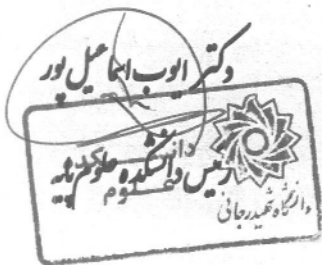 دکتر ایوب اسماعیل پور
رئیس دانشکده علوم پایه
دانشگاه شهید رجائی